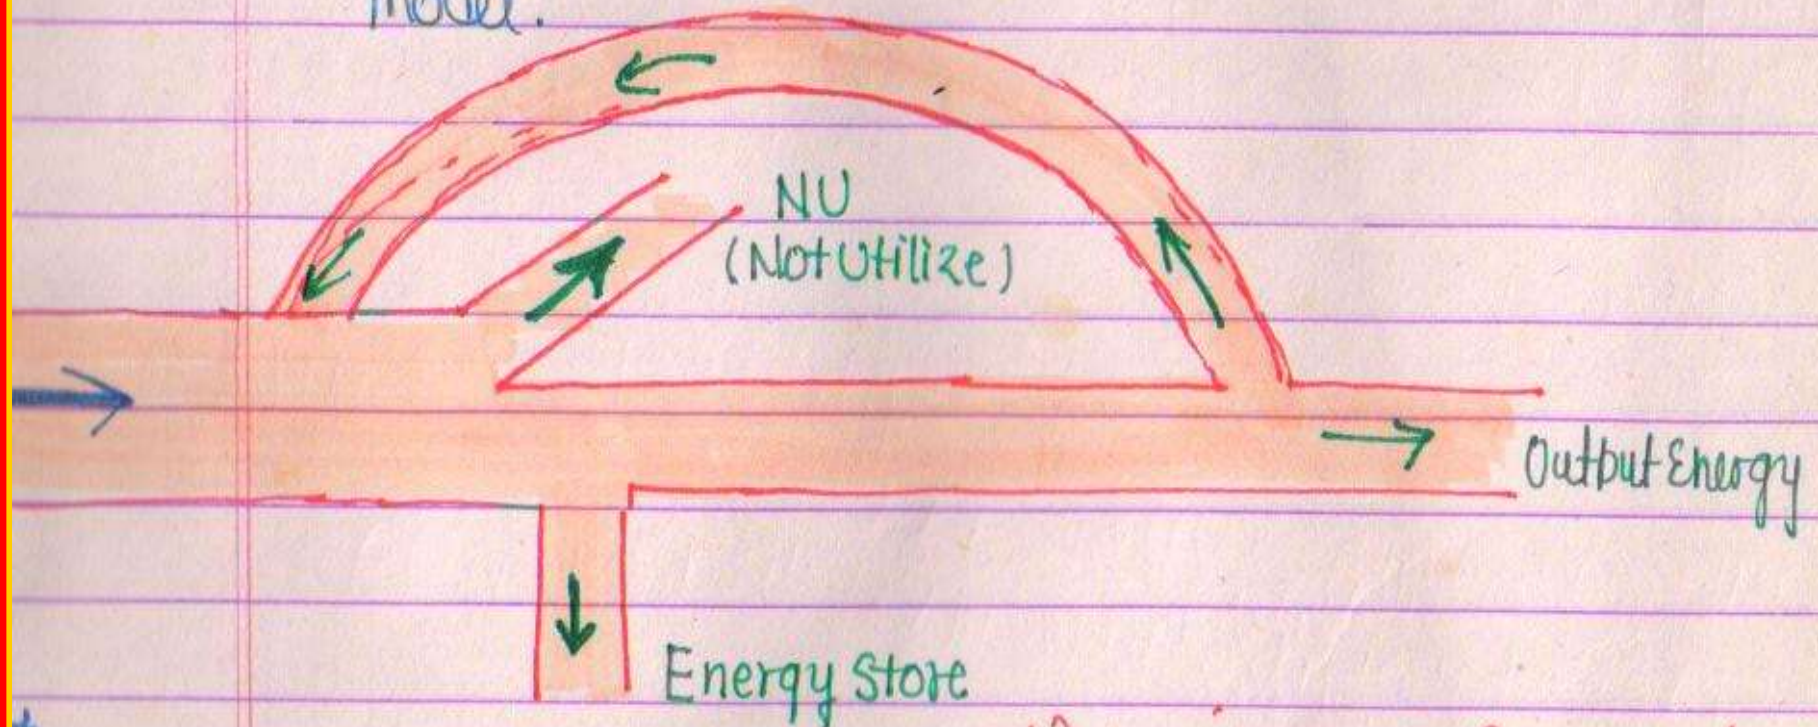 Model.
NU
(Not Utilize)
Outbut Energy
Energy Store